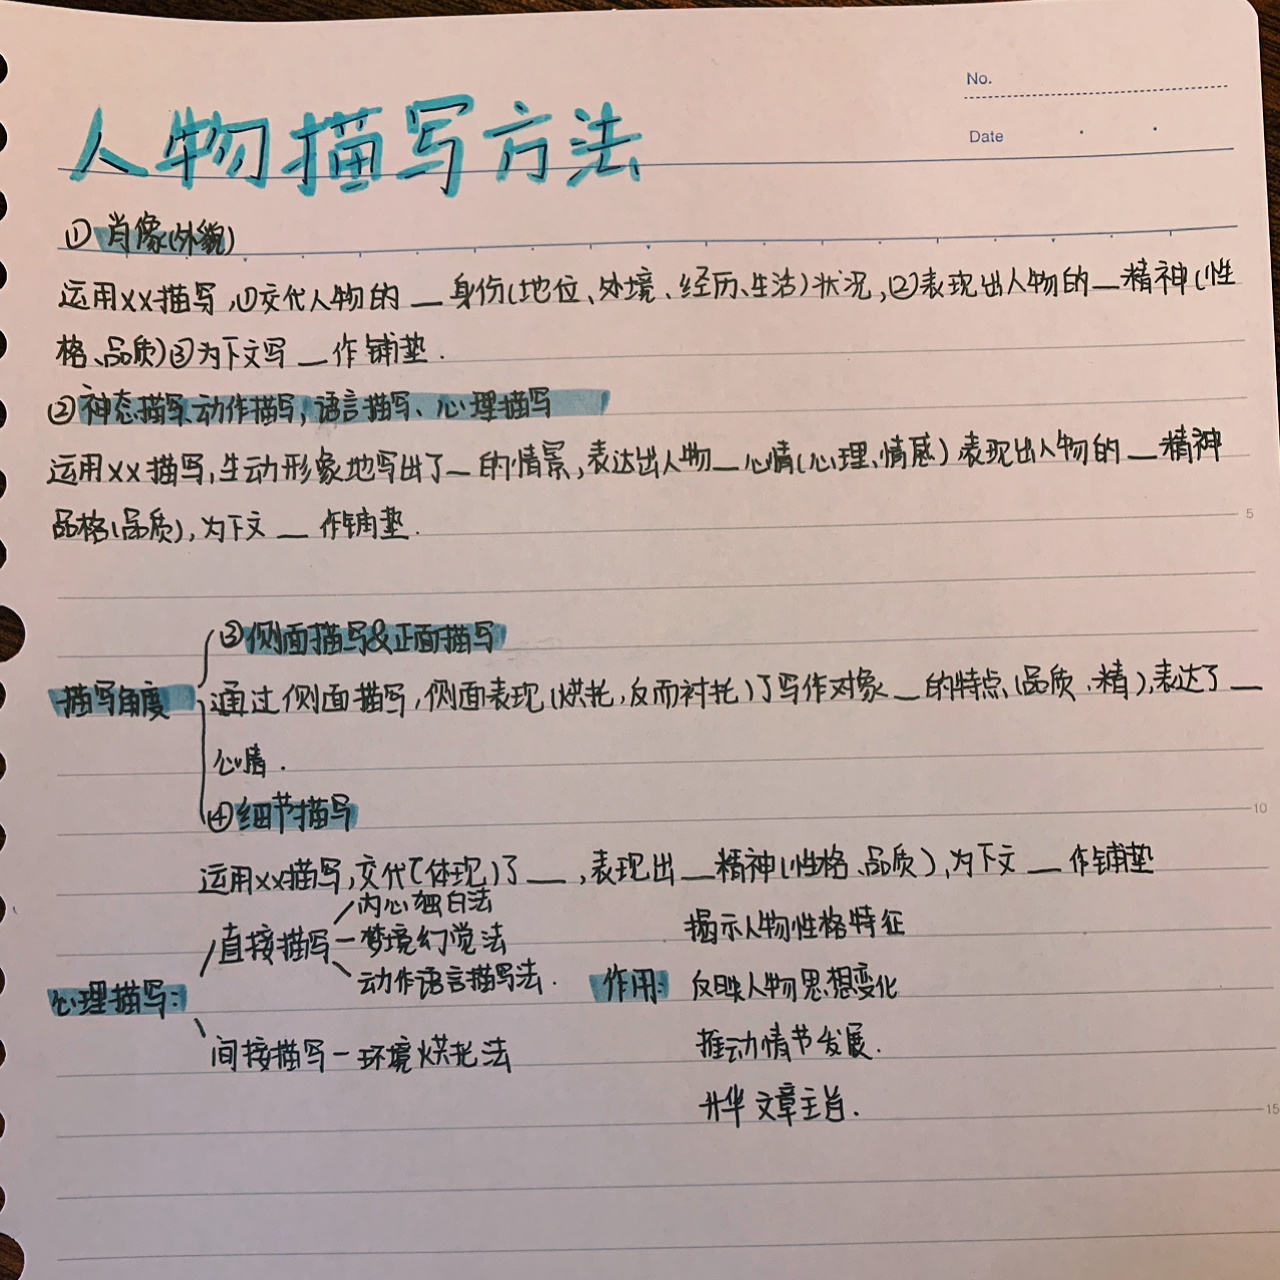 No.
Date
人物描写方法
①肖像(外貌)
运用xx描写,①交代人物的__身份(地位、外境、经历、生活)状况,②表现出人物的__精神(性
格、品质)③为下文写__作铺垫.
②神态描写、动作描写,语言描写、心理描写
运用xx描写,生动形象地写出了__的情景,表达出人物__心情(心理、情感)表现出人物的__精神
品格(品质),为下文__作铺垫.
5
③侧面描写&正面描写
描写角度
通过侧面描写,侧面表现(烘托,反而衬托)了写作对象__的特点、(品质、精),表达了__
心情.
④细节描写
10
运用xx描写,交代[体现)了__,表现出__精神(性格、品质),为下文__作铺垫
内心独白法
直接描写-梦境幻觉法
动作语言描写法.
心理描写:
间接描写-环境烘托法
揭示人物性格特征
作用: 反映人物思想变化
推动情节发展.
升华文章主旨.
15